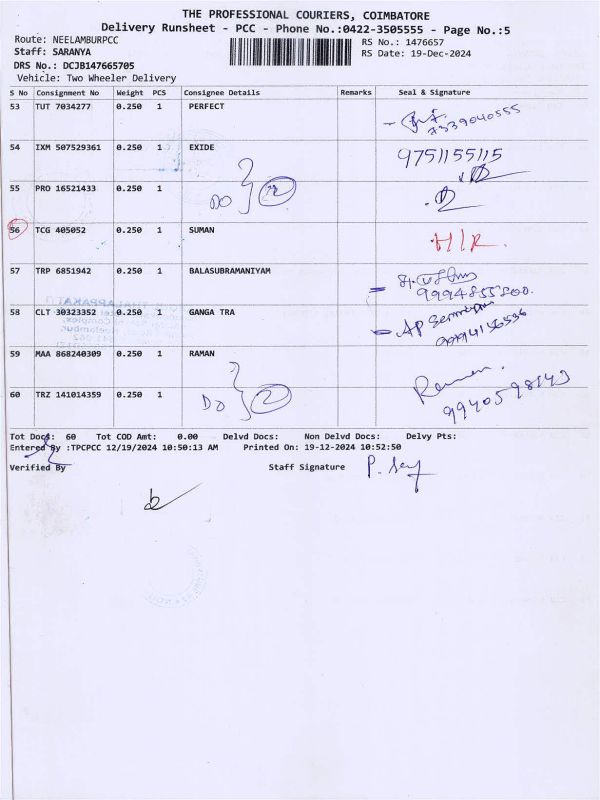 THE PROFESSIONAL COURIERS, COIMBATORE
Delivery Runsheet - PCC - Phone No.:0422-3505555 - Page No.:5
Route: NEELAMBURPCC
RS No.: 1476657
Staff: SARANYA
RS Date: 19-Dec-2024
DRS No.: DCJB147665705
Vehicle: Two Wheeler Delivery
S No Consignment No Weight PCS Consignee Details Remarks Seal & Signature
53 TUT 7034277 0.250 1 PERFECT
7339040555
54 IXM 507529361 0.250 1 EXIDE 9751155115
55 PRO 16521433 0.250 1
DO 2
56 TCG 405052 0.250 1 SUMAN H/R.
57 TRP 6851942 0.250 1 BALASUBRAMANIYAM
9994855800.
58 CLT 30323352 0.250 1 GANGA TRA
59 MAA 868240309 0.250 1 RAMAN Raman.
60 TRZ 141014359 0.250 1 9940598143
DO 2
Tot Docs: 60 Tot COD Amt: 0.00 Delvd Docs: Non Delvd Docs: Delvy Pts:
Entered By :TPCPCC 12/19/2024 10:50:13 AM Printed On: 19-12-2024 10:52:50
Verified By Staff Signature